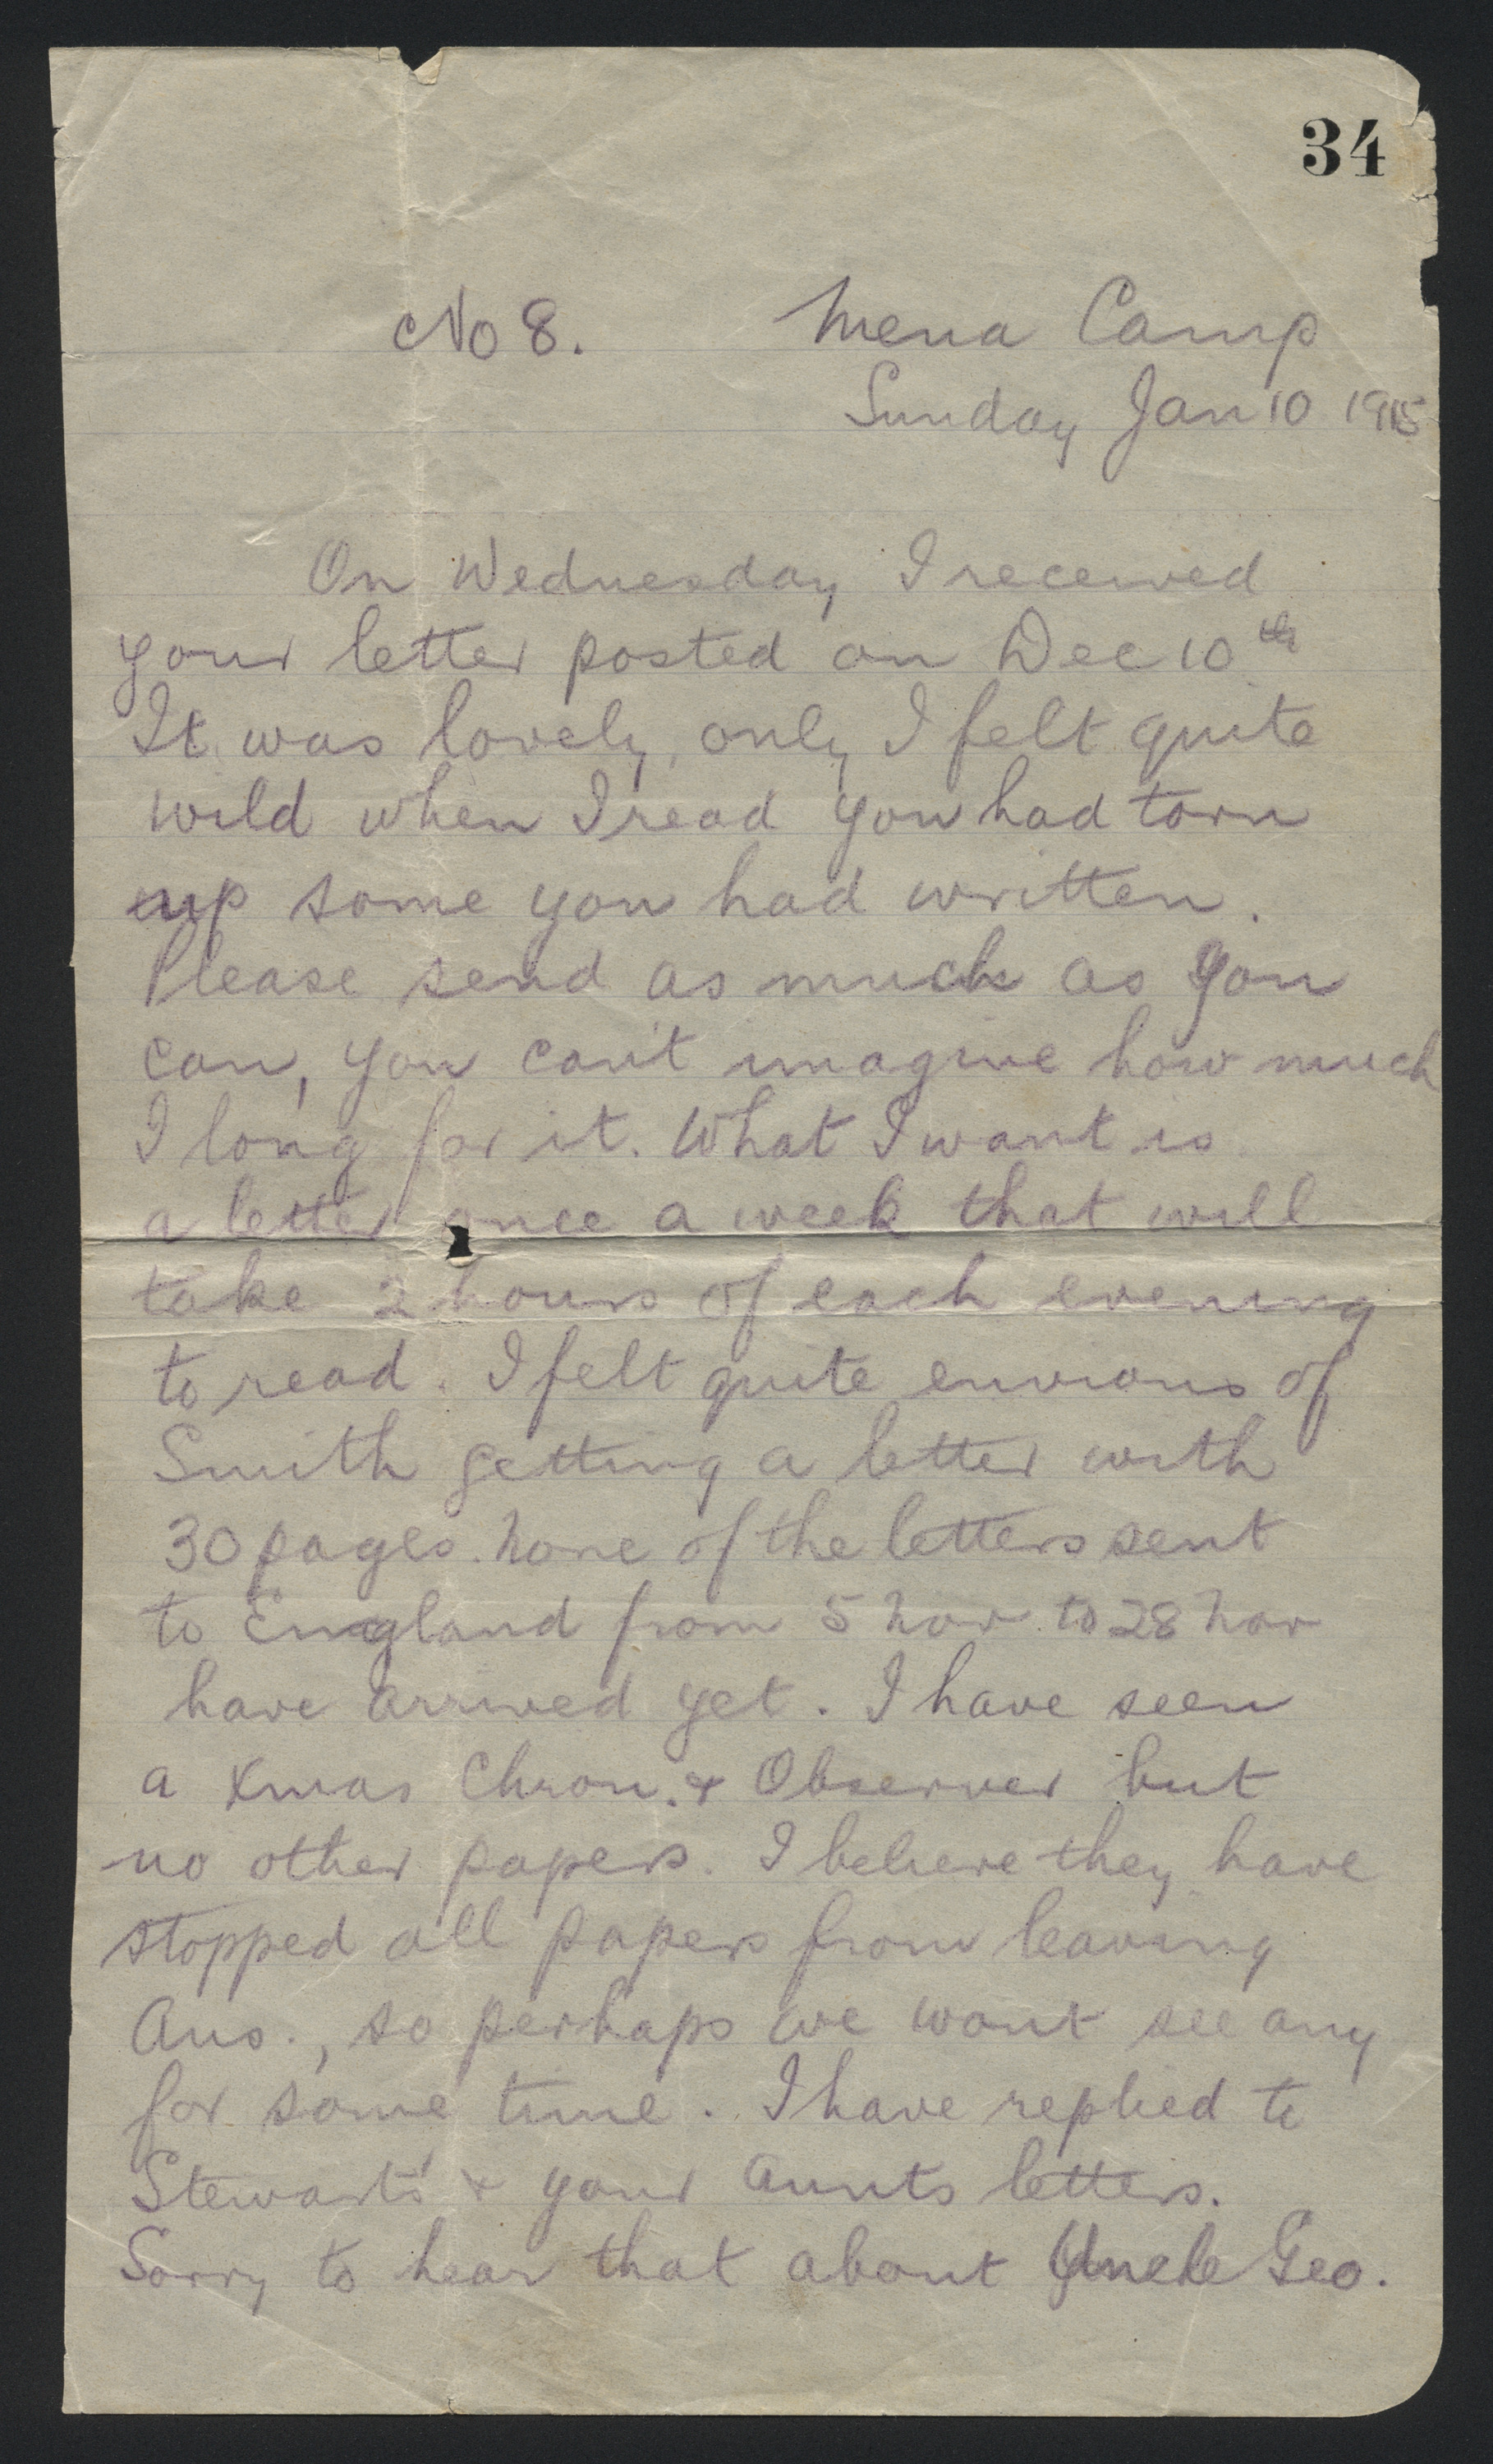 34
No 8. Mena Camp
Sunday Jan 10 1915
On Wednesday I received
your letter posted on Dec 10th
It was lovely, only I felt quite
wild when I read you had torn
up some you had written.
Please send as much as you
can, you can't imagine how much
I long for it. What I want is
a letter once a week that will
take 2 hours of each evening
to read. I felt quite envious of
Smith getting a letter with
30 pages. None of the letters sent
to England from 5 Nov. to 28 Nov
have arrived yet. I have seen
a Xmas Chron. & Observer but
no other papers. I believe they have
stopped all papers from leaving
Aus., so perhaps we wont see any
for some time. I have replied to
Stewart's & your Aunts letters.
Sorry to hear that about Uncle Geo.